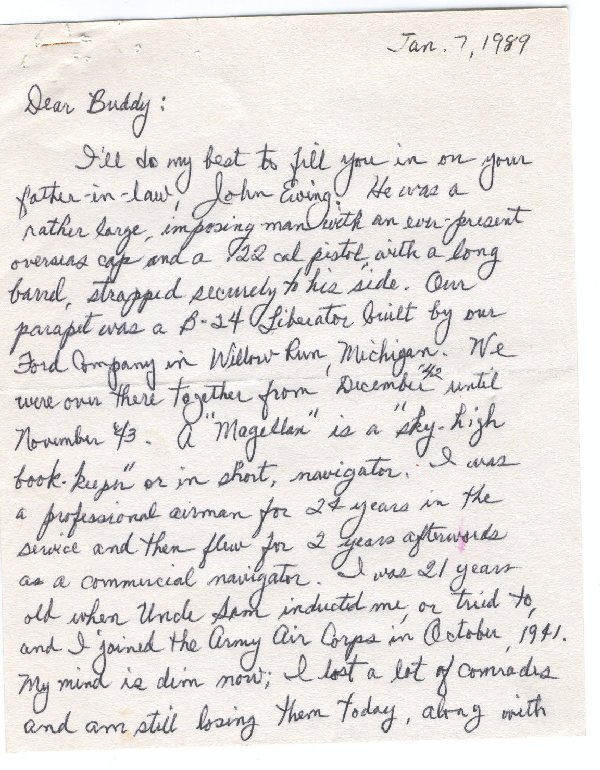 Jan. 7, 1989
Dear Buddy:
I'll do my best to fill you in on your
father-in-law, John Ewing. He was a
rather large, imposing man with an ever-present
overseas cap and a .22 cal pistol, with a long
barrel, strapped securely to his side. Our
parapet was a B-24 Liberator built by our
Ford Company in Willow Run, Michigan. We
were over there together from December '42 until
November '43. A "Magellan" is a "sky-high
book-keeper" or in short, navigator. I was
a professional airman for 24 years in the
service and then flew for 2 years afterwords
as a commercial navigator. I was 21 years
old when Uncle Sam inducted me, or tried to,
and I joined the Army Air Corps in October, 1941.
My mind is dim now; I lost a lot of comrades
and am still losing them today, along with